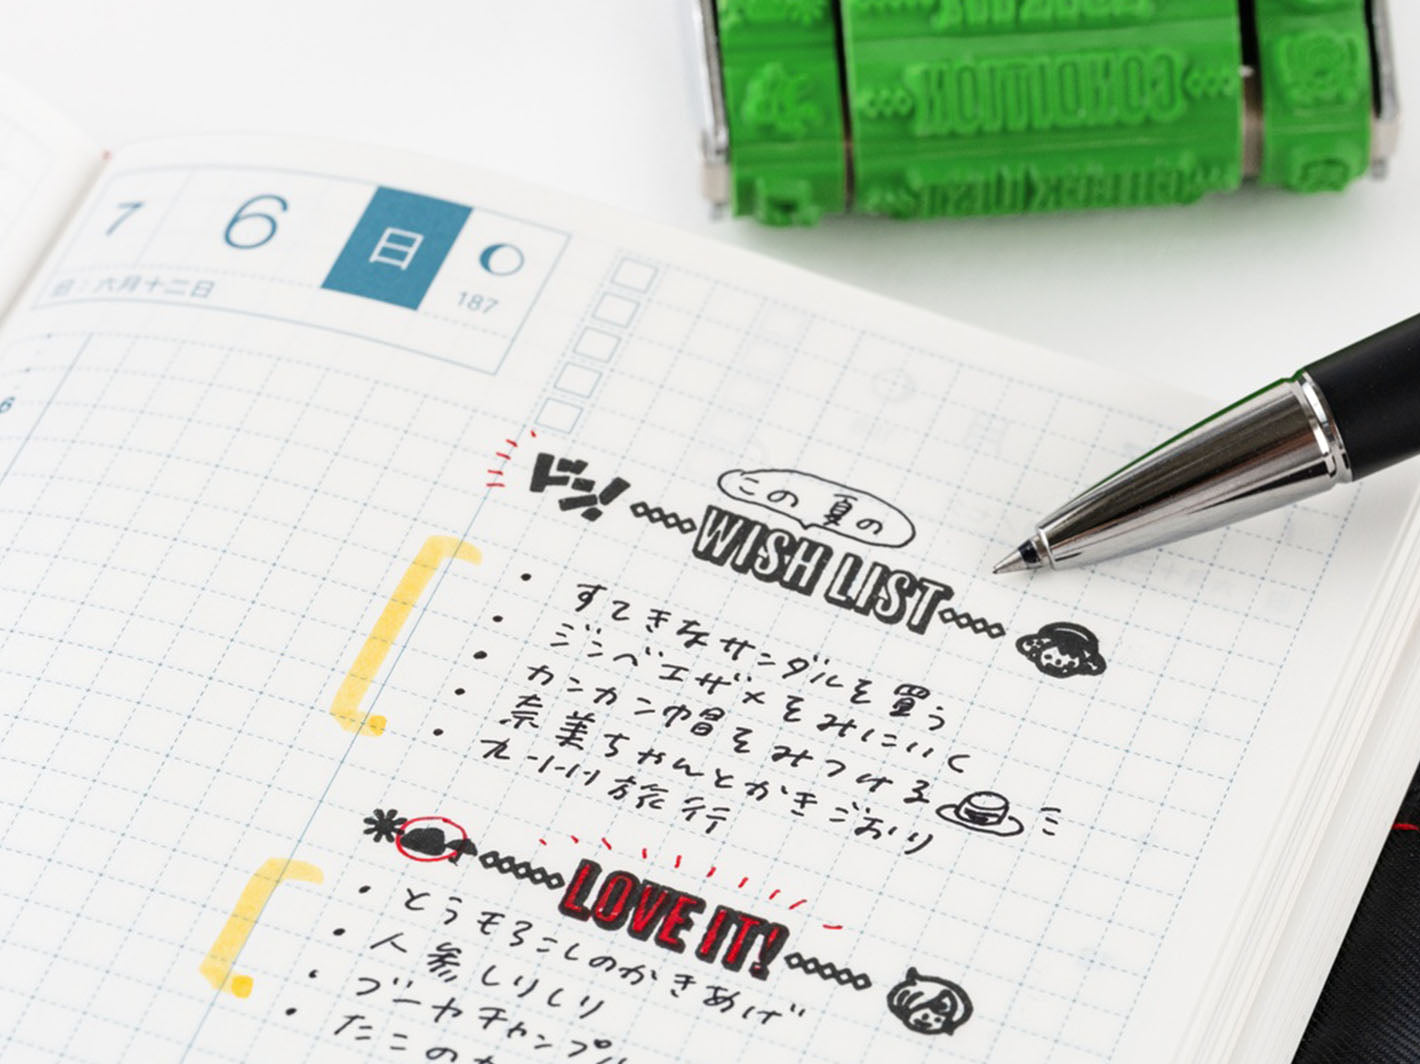 CONDITION
7 6 日
旧:六月十二日
187
6
ドン!
この夏の
WISH LIST
・すてきなサンダルを買う
・ジンベエザメをみにいく
・カンカン帽をみつける
・奈美ちゃんとかきごおり
・九州旅行
LOVE IT!
・とうもろこしのかきあげ
・人参しりしり
・ゴーヤチャンプル
・たこの